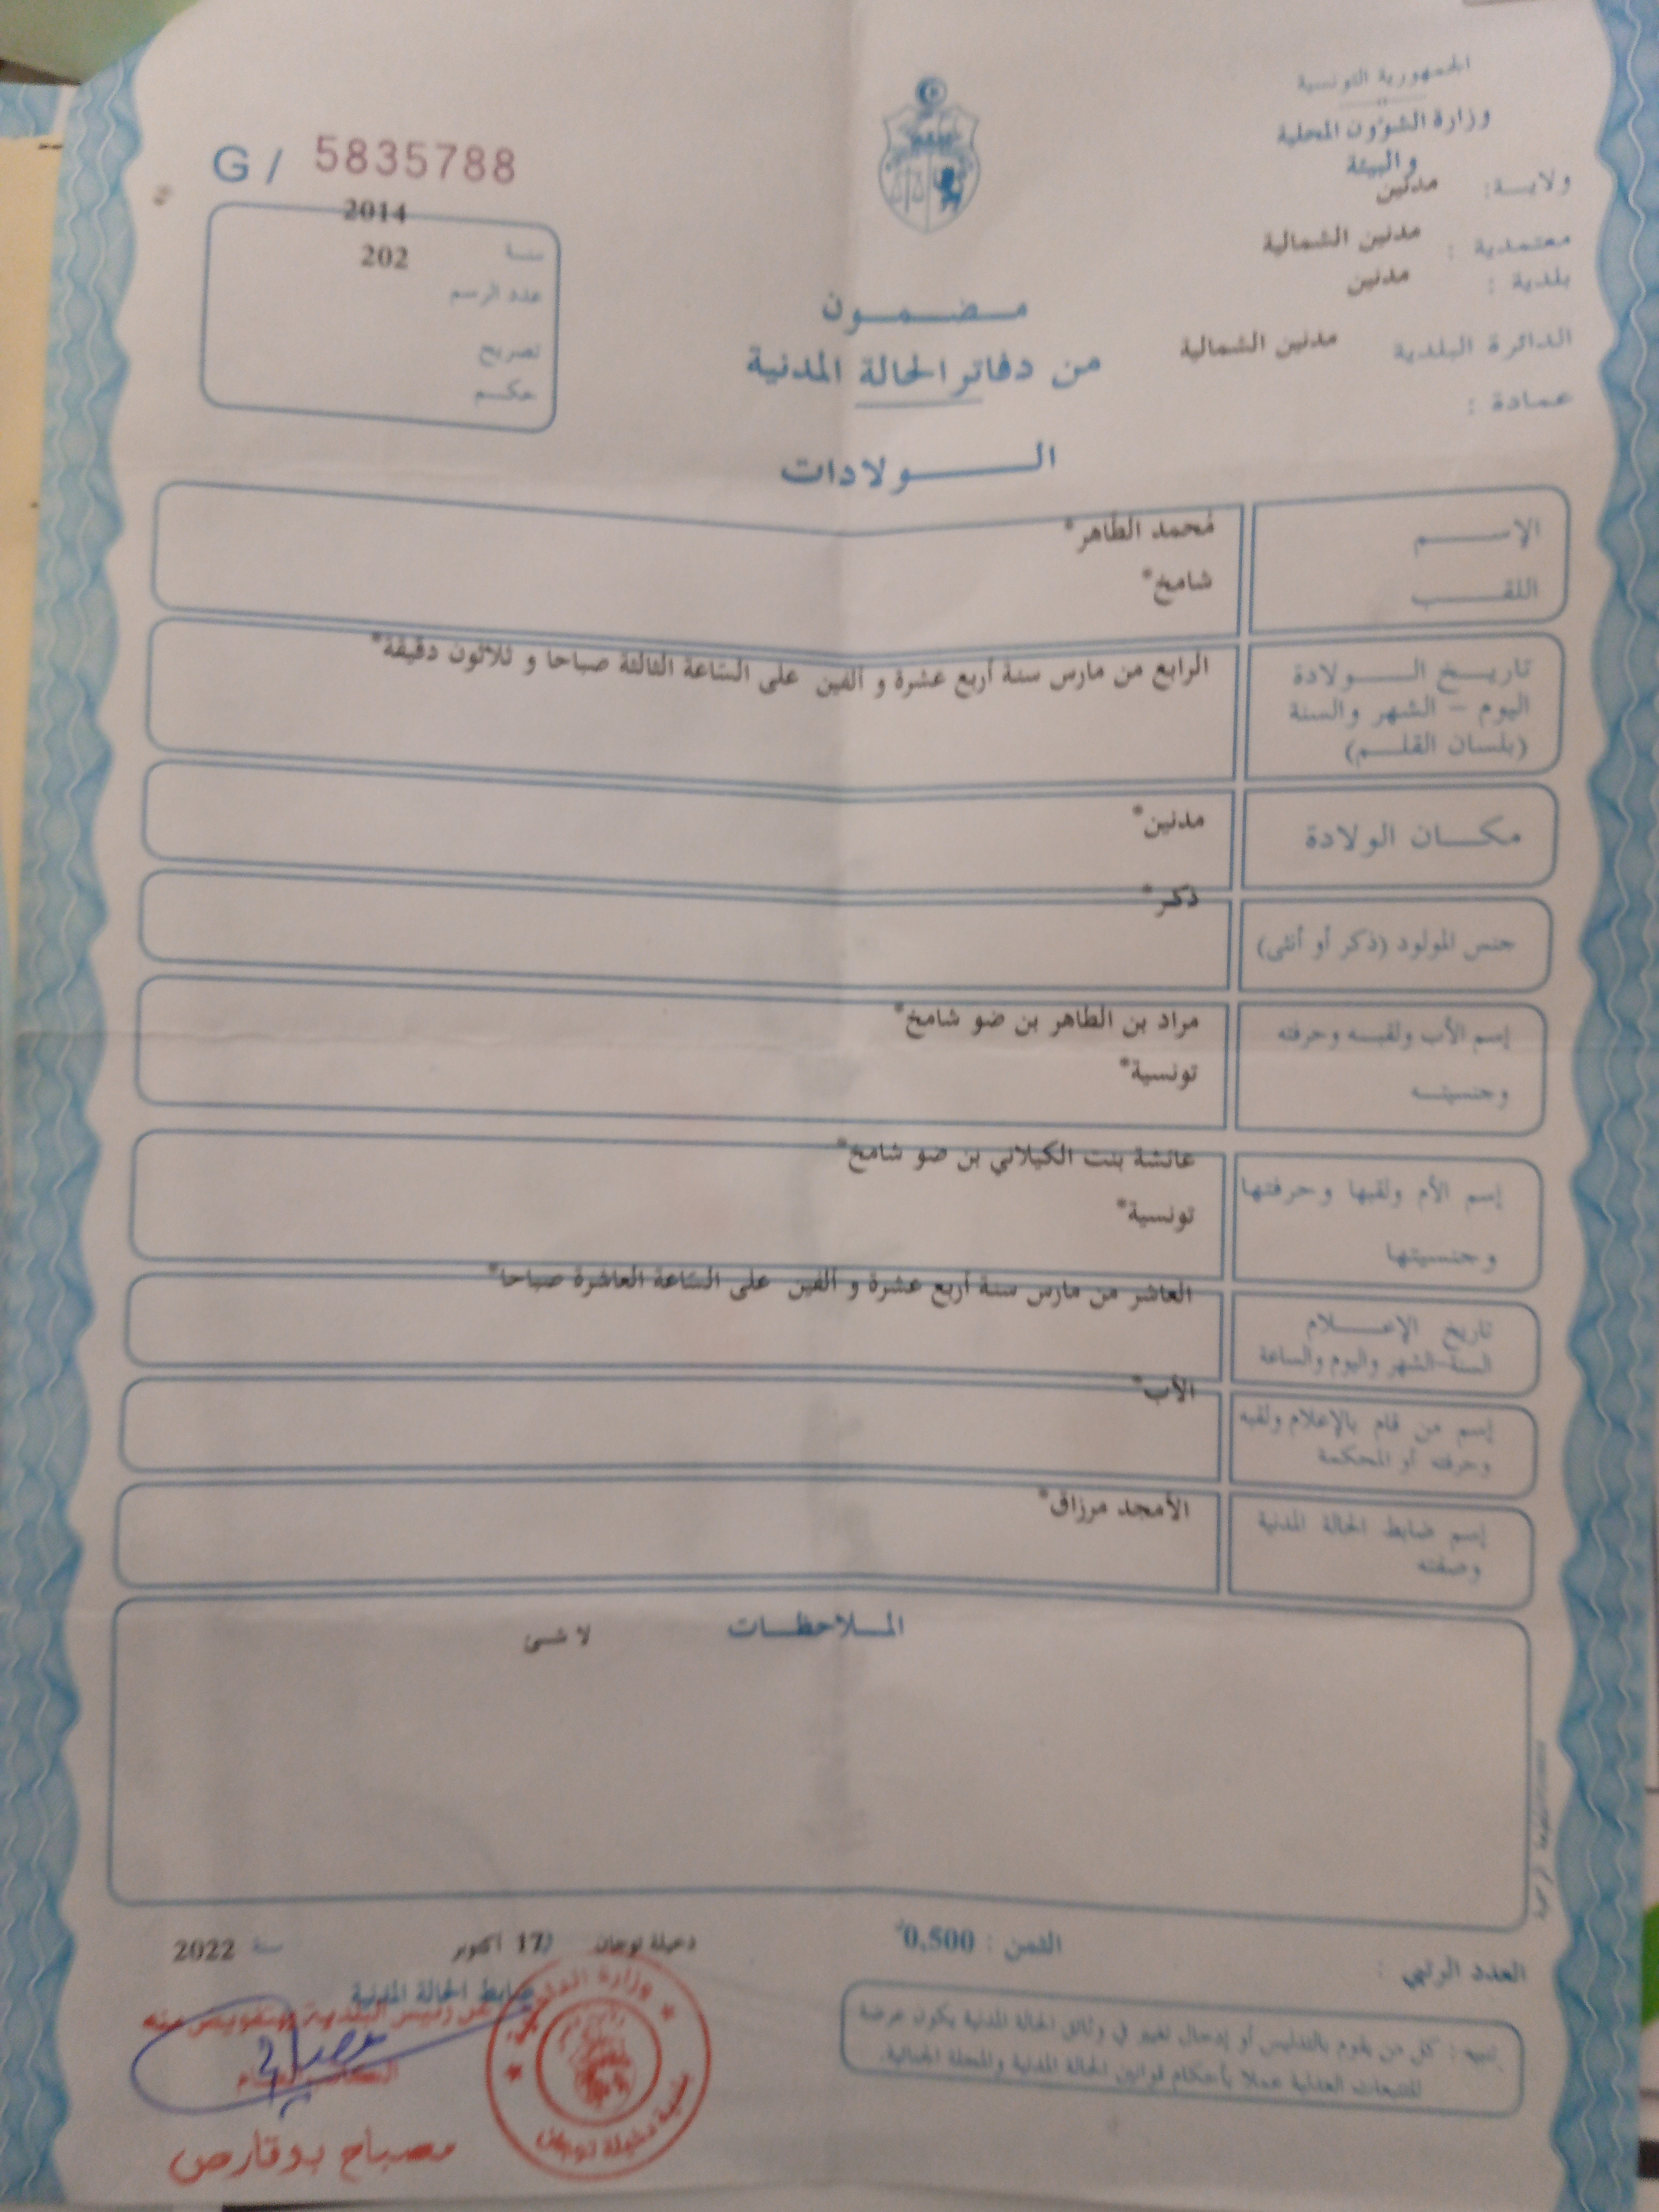 الجمهورية التونسية
وزارة الشؤون المحلية
والبيئة
ولايـة: مدنين
معتمدية : مدنين الشمالية
بلدية : مدنين
الدائرة البلدية مدنين الشمالية
عمادة :
G / 5835788
2014
سنة
202
عدد الرسم
تصريح
حكم
مضمون
من دفاتر الحالة المدنية
الـولادات
الإسم محمد الطاهر*
اللقب شامخ*
تاريخ الولادة الرابع من مارس سنة أربع عشرة و ألفين على الساعة الثالثة صباحا و ثلاثون دقيقة*
اليوم – الشهر والسنة
(بلسان القلم)
مكان الولادة مدنين*
جنس المولود (ذكر أو أنثى) ذكر*
إسم الأب ولقبه وحرفته مراد بن الطاهر بن ضو شامخ*
وجنسيته تونسية*
إسم الأم ولقبها وحرفتها عائشة بنت الكيلاني بن ضو شامخ*
وجنسيتها تونسية*
تاريخ الإعلام العاشر من مارس سنة أربع عشرة و ألفين على الساعة العاشرة صباحا*
السنة-الشهر واليوم والساعة
إسم من قام بالإعلام ولقبه الأب*
وحرفته أو المحكمة
إسم ضابط الحالة المدنية الأمجد مرزاق*
وصفته
الملاحظات لا شئ
العدد الرتبي :
الثمن : 0,500
دخيلة توجان 17 أكتوبر سنة 2022
ضابط الحالة المدنية
عن رئيس البلدية وبتفويض منه
الكاتب العام
مصباح بوقارص
وزارة الداخلية
بلدية دخيلة توجان
تنبيه : كل من يقوم بالتدليس أو إدخال تغيير في وثائق الحالة المدنية يكون عرضة
للتتبعات العدلية عملا بأحكام قوانين الحالة المدنية والمجلة الجنائية.